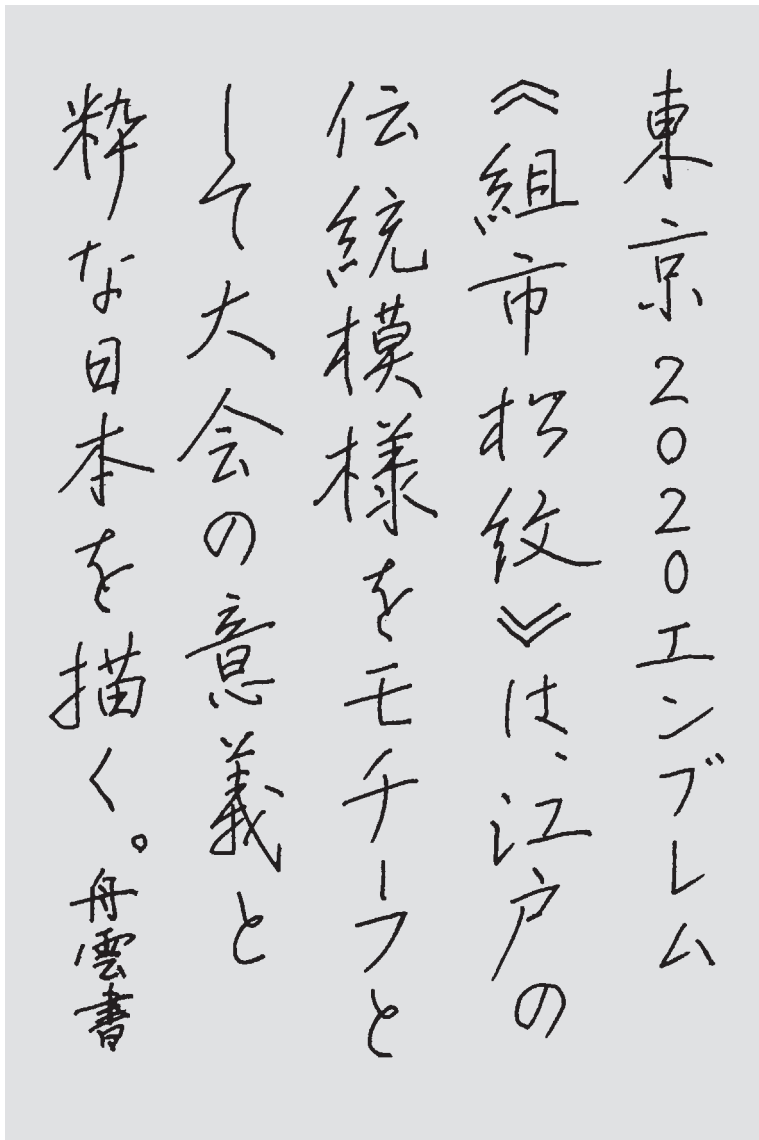 東京2020エンブレム
《組市松紋》は、江戸の
伝統模様をモチーフと
して大会の意義と
粋な日本を描く。舟雲書